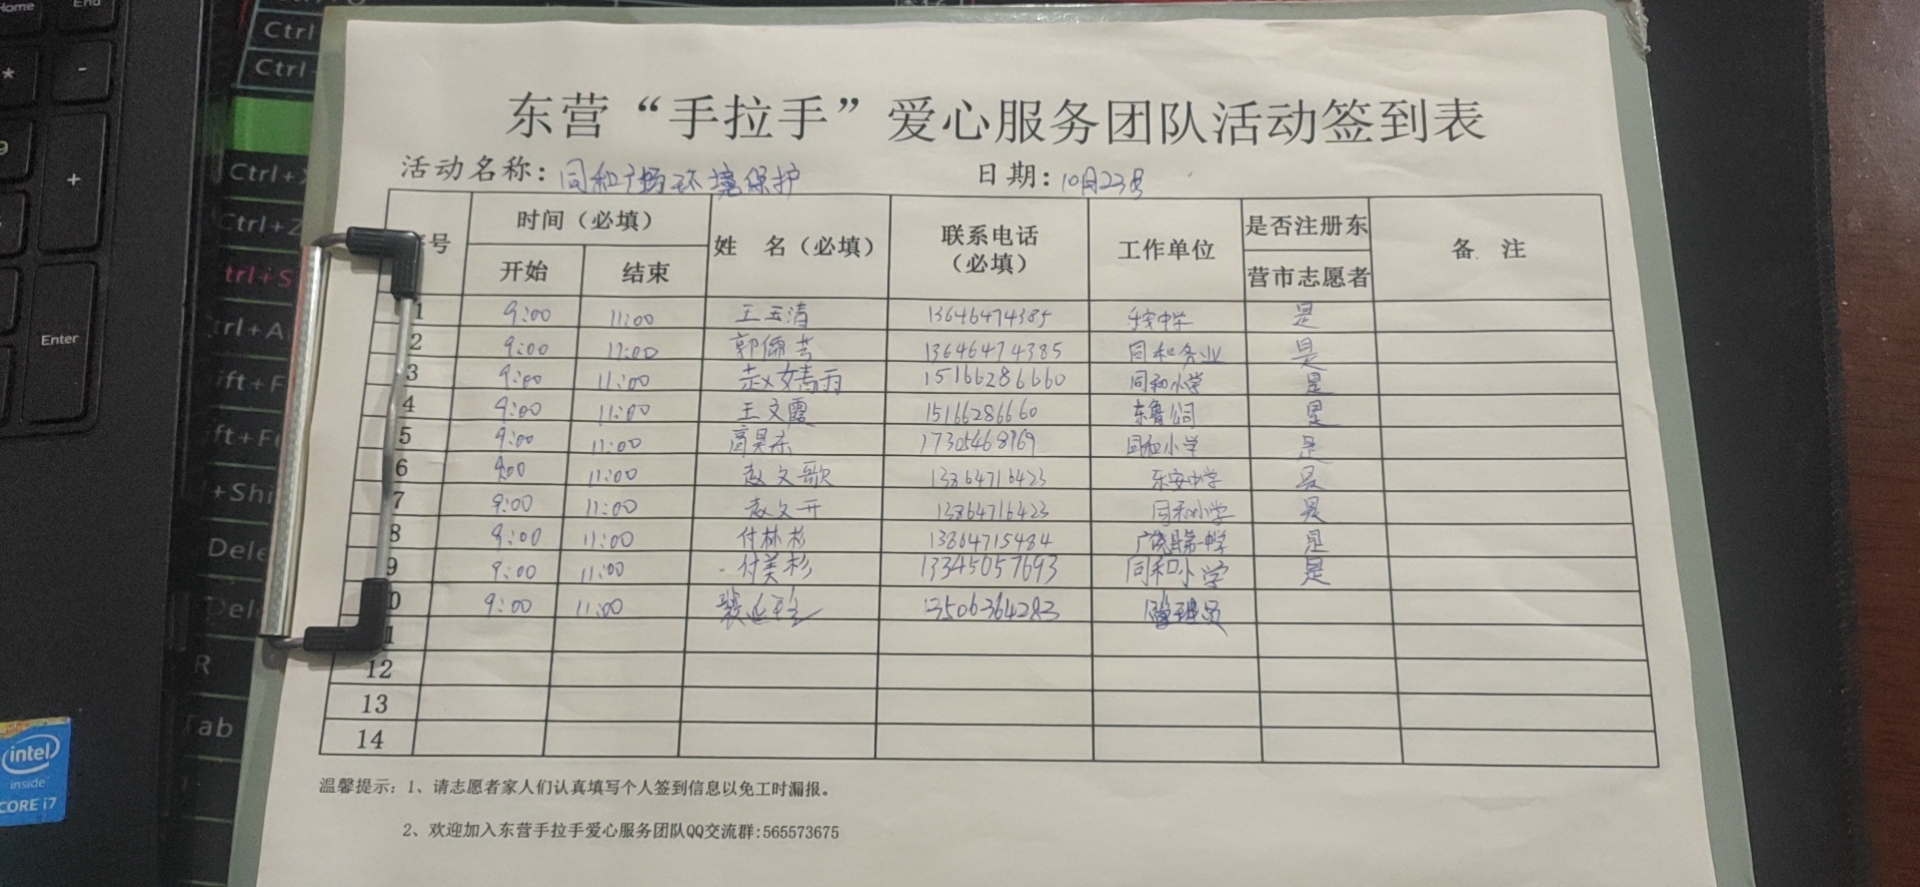 Home
End
Ctrl
Ctrl
*
-
9
+
Enter
Ctrl+
Ctrl+Z
trl+S
trl+A
ift+F
ft+F
+Shi
Dele
Del
R
Tab
intel
inside
CORE i7
东营“手拉手”爱心服务团队活动签到表
活动名称：同和广场环境保护 日期：10月23号
号 时间（必填） 姓 名（必填） 联系电话（必填） 工作单位 是否注册东营市志愿者 备 注
开始 结束
1 9:00 11:00 王玉清 13646474385 乐安中学 是
2 9:00 11:00 郭佩芸 13646474385 同和务业 是
3 9:00 11:00 赵婧雨 15166286660 同和小学 是
4 9:00 11:00 王文霞 15166286660 东鲁公司 是
5 9:00 11:00 高昊东 17305468769 同和小学 是
6 9:00 11:00 赵文歌 13864716423 乐安中学 是
7 9:00 11:00 赵文开 13864716423 同和小学 是
8 9:00 11:00 付林杉 13864715484 广饶县第一中学 是
9 9:00 11:00 付美杉 13345057693 同和小学 是
0 9:00 11:00 13506364283 管理员
1
12
13
14
温馨提示：1、请志愿者家人们认真填写个人签到信息以免工时漏报。
2、欢迎加入东营手拉手爱心服务团队QQ交流群:565573675